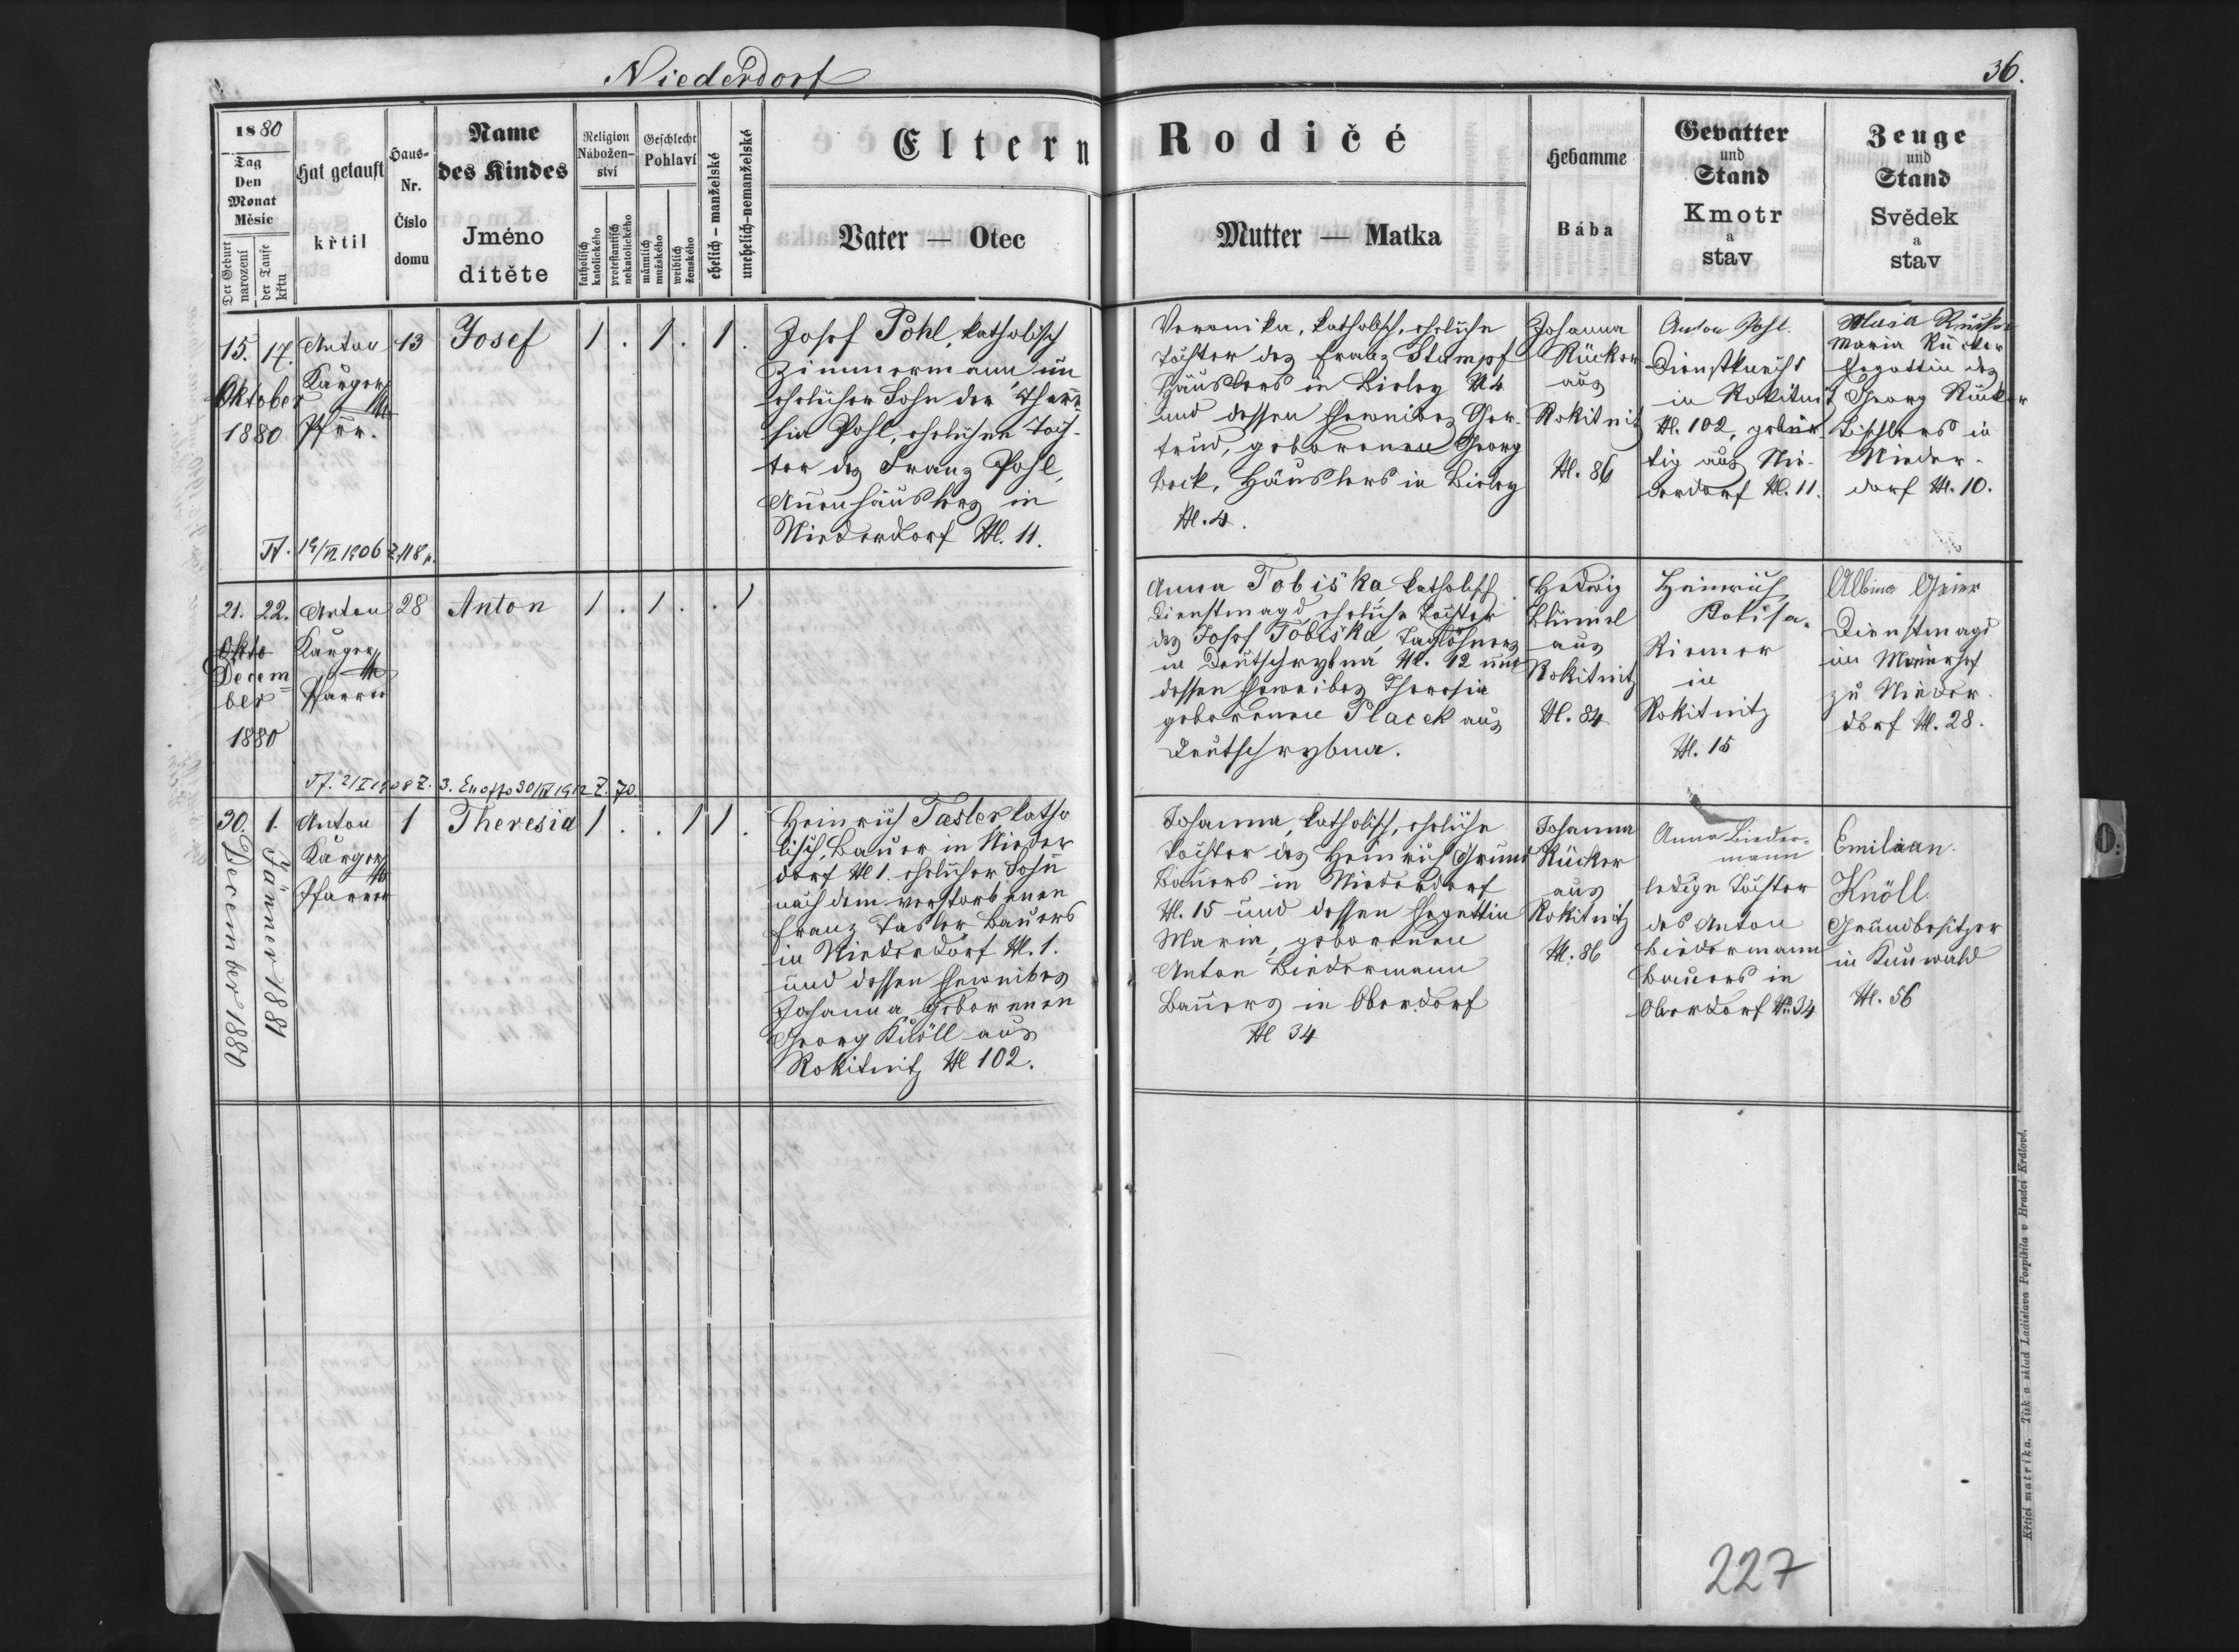 Niederdorf
36.
1880
Tag
Den
Monat
Měsíc
Der Geburt
narození
der Taufe
křtu
Hat getauft
křtil
Haus-
Nr.
Číslo
domu
Name
des Kindes
Jméno
dítěte
Religion
Nábožen-
ství
katholisch
katolického
protestantisch
nekatolického
Geschlecht
Pohlaví
männlich
mužského
weiblich
ženského
ehelich – manželské
unehelich-nemanželské
Eltern
Rodičé
Vater — Otec
Mutter — Matka
Hebamme
Bába
Gevatter
und
Stand
Kmotr
a
stav
Zeuge
und
Stand
Svědek
a
stav
15. 17.
Oktober
1880
Anton
Karger
Pfrr.
13
Josef
1 . 1 . 1 .
Josef Pohl, katholisch
Zimmermann, un
ehelicher Sohn der There-
sia Pohl, ehelichen Toch-
ter des Franz Pohl,
Auenhäuslers in
Niederdorf N. 11.
Veronika, katholisch, eheliche
Tochter des Franz Stumpf
Häuslers in Bieloy N 4
und dessen Eheweibes Ger-
trud, geborenen Georg
Bock, Häuslers in Bieloy
N. 4.
Johanna
Rücker
aus
Rokitnitz
N. 86
Anton Pohl.
Dienstknecht
in Rokitnitz
N. 102, gebür-
tig aus Nie-
derdorf N. 11.
Maria Rücker
Maria Rücker
Ehegattin des
Georg Rücker
Tischlers in
Nieder-
dorf N. 10.
Tf. 19/VI 1906 Z. 118 p.
21. 22.
Okto
Decem=
ber
1880
Anton
Karger
Pfarrer
28
Anton
1 . 1 . . 1
Anna Tobiška, katholisch
Dienstmagd, eheliche Tochter
des Josef Tobiška Taglöhners
in Deutschrybna N. 12 und
dessen Eheweibes Theresia
geborenen Placek aus
Deutschrybna.
Hedwig
Blümel
aus
Rokitnitz
N. 84
Heinrich
Riemer
in
Rokitnitz
N. 15
Albina Geier
Dienstmagd
im Maierhof
zu Nieder-
dorf N. 28.
30. December 1880
1. Jänner 1881
Anton
Karger
Pfarrer
1
Theresia
1 . . 1 1 .
Heinrich Tasler, katho
lisch, Bauer in Nieder
dorf N 1. ehelicher Sohn
nach dem verstorbenen
Franz Tasler Bauers
in Niederdorf N. 1.
und dessen Eheweibes
Johanna geborenen
Georg Knöll aus
Rokitnitz N 102.
Johanna, katholisch, eheliche
Tochter des Heinrich Grund
Bauers in Niederdorf
N. 15 und dessen Ehegattin
Maria, geborenen
Anton Biedermann
Bauers in Oberdorf
N 34
Johanna
Rücker
aus
Rokitnitz
N. 86
Anna Bieder-
mann
ledige Tochter
des Anton
Biedermann
Bauers in
Oberdorf No. 34
Emilian.
Knöll.
Grundbesitzer
in Kunwald
N. 56
Křticí matrika. Tisk a sklad Ladislava Pospíšila v Hradci Králové.
227